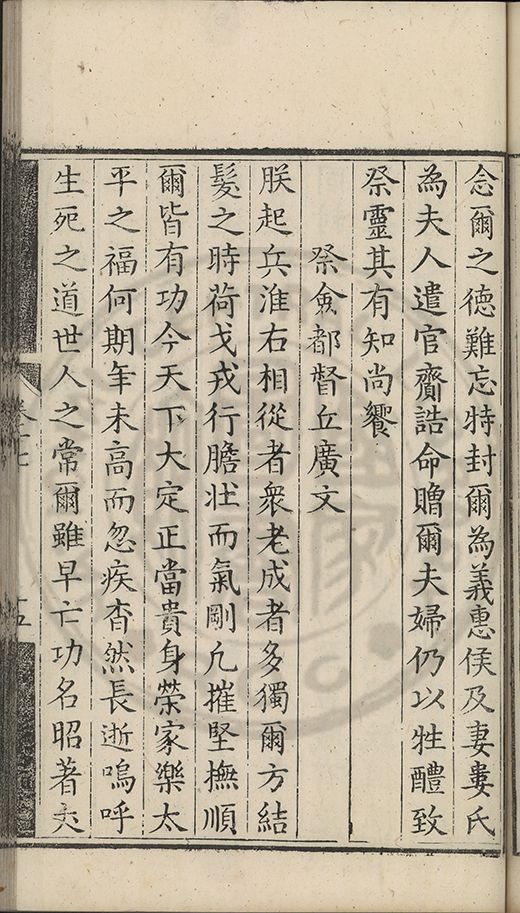 念爾之德難忘特封爾為義惠侯及妻婁氏
為夫人遣官齎誥命贈爾夫婦仍以牲醴致
祭靈其有知尚饗
祭僉都督丘廣文
朕起兵淮右相從者衆老成者多獨爾方結
髮之時荷戈戎行膽壯而氣剛凢摧堅撫順
爾皆有功今天下大定正當貴身榮家樂太
平之福何期年未高而忽疾杳然長逝嗚呼
生死之道世人之常爾雖早亡功名昭著夾